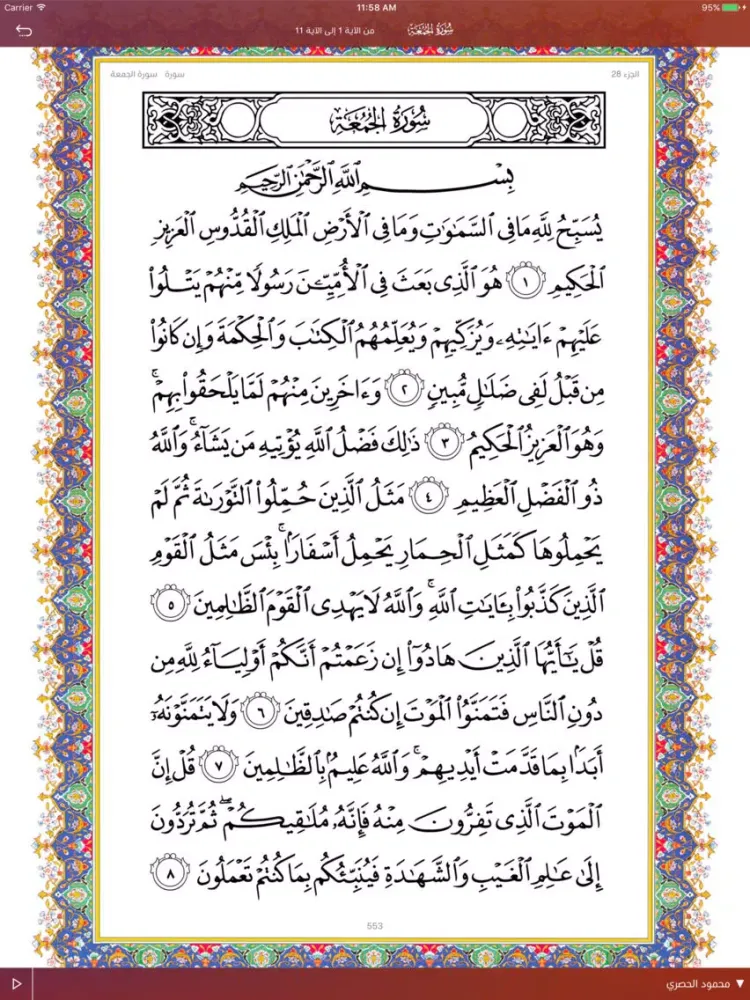 Carrier 11:58 AM 95%
سورة الجمعة من الآية 1 إلى الآية 11
الجزء 28 سورة سورة الجمعة
سُورَةُ الجُمُعَة
بِسْمِ اللَّهِ الرَّحْمَٰنِ الرَّحِيمِ
يُسَبِّحُ لِلَّهِ مَا فِى السَّمَٰوَٰتِ وَمَا فِى الْأَرْضِ الْمَلِكِ الْقُدُّوسِ الْعَزِيزِ
الْحَكِيمِ ١ هُوَ الَّذِى بَعَثَ فِى الْأُمِّيِّـۧنَ رَسُولًا مِّنْهُمْ يَتْلُوا۟
عَلَيْهِمْ ءَايَٰتِهِۦ وَيُزَكِّيهِمْ وَيُعَلِّمُهُمُ الْكِتَٰبَ وَالْحِكْمَةَ وَإِن كَانُوا۟
مِن قَبْلُ لَفِى ضَلَٰلٍ مُّبِينٍ ٢ وَءَاخَرِينَ مِنْهُمْ لَمَّا يَلْحَقُوا۟ بِهِمْ ۚ
وَهُوَ الْعَزِيزُ الْحَكِيمُ ٣ ذَٰلِكَ فَضْلُ اللَّهِ يُؤْتِيهِ مَن يَشَآءُ ۚ وَاللَّهُ
ذُو الْفَضْلِ الْعَظِيمِ ٤ مَثَلُ الَّذِينَ حُمِّلُوا۟ التَّوْرَىٰةَ ثُمَّ لَمْ
يَحْمِلُوهَا كَمَثَلِ الْحِمَارِ يَحْمِلُ أَسْفَارًۢا ۚ بِئْسَ مَثَلُ الْقَوْمِ
الَّذِينَ كَذَّبُوا۟ بِـَٔايَٰتِ اللَّهِ ۚ وَاللَّهُ لَا يَهْدِى الْقَوْمَ الظَّٰلِمِينَ ٥
قُلْ يَٰٓأَيُّهَا الَّذِينَ هَادُوٓا۟ إِن زَعَمْتُمْ أَنَّكُمْ أَوْلِيَآءُ لِلَّهِ مِن
دُونِ النَّاسِ فَتَمَنَّوُا۟ الْمَوْتَ إِن كُنتُمْ صَٰدِقِينَ ٦ وَلَا يَتَمَنَّوْنَهُۥٓ
أَبَدًۢا بِمَا قَدَّمَتْ أَيْدِيهِمْ ۚ وَاللَّهُ عَلِيمٌۢ بِالظَّٰلِمِينَ ٧ قُلْ إِنَّ
الْمَوْتَ الَّذِى تَفِرُّونَ مِنْهُ فَإِنَّهُۥ مُلَٰقِيكُمْ ۖ ثُمَّ تُرَدُّونَ
إِلَىٰ عَٰلِمِ الْغَيْبِ وَالشَّهَٰدَةِ فَيُنَبِّئُكُم بِمَا كُنتُمْ تَعْمَلُونَ ٨
553
محمود الحصري